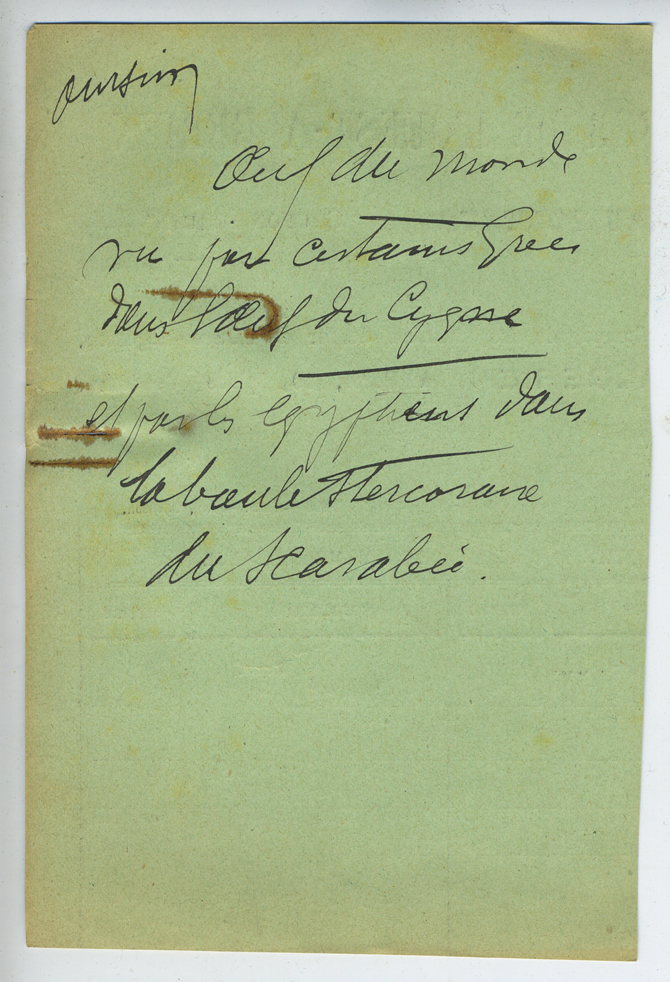 oursin
Œuf du monde
vu par certains Grecs
dans l'œuf du Cygne
et par les égyptiens dans
la boule stercoraire
du Scarabée.